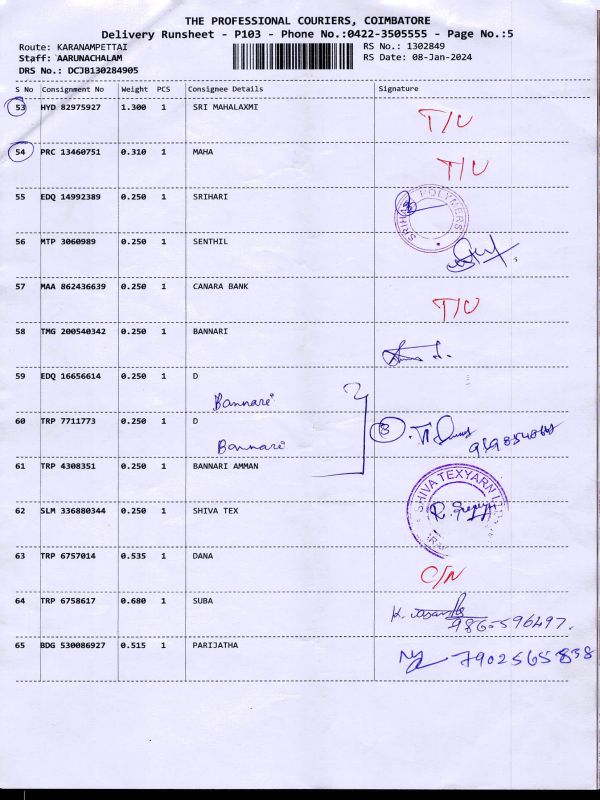 THE PROFESSIONAL COURIERS, COIMBATORE
Delivery Runsheet - P103 - Phone No.:0422-3505555 - Page No.:5
Route: KARANAMPETTAI
RS No.: 1302849
Staff: AARUNACHALAM
RS Date: 08-Jan-2024
DRS No.: DCJB130284905
S No Consignment No Weight PCS Consignee Details Signature
53 HYD 82975927 1.300 1 SRI MAHALAXMI T/U
54 PRC 13460751 0.310 1 MAHA T/U
55 EDQ 14992389 0.250 1 SRIHARI
SRIHARI POLYMERS
56 MTP 3060989 0.250 1 SENTHIL
57 MAA 862436639 0.250 1 CANARA BANK T/U
58 TMG 200540342 0.250 1 BANNARI
59 EDQ 16656614 0.250 1 D
Bannari
60 TRP 7711773 0.250 1 D
3
Bannari
61 TRP 4308351 0.250 1 BANNARI AMMAN
62 SLM 336880344 0.250 1 SHIVA TEX
SHIVA TEXYARN
63 TRP 6757014 0.535 1 DANA C/N
64 TRP 6758617 0.680 1 SUBA
65 BDG 530086927 0.515 1 PARIJATHA
7902565838